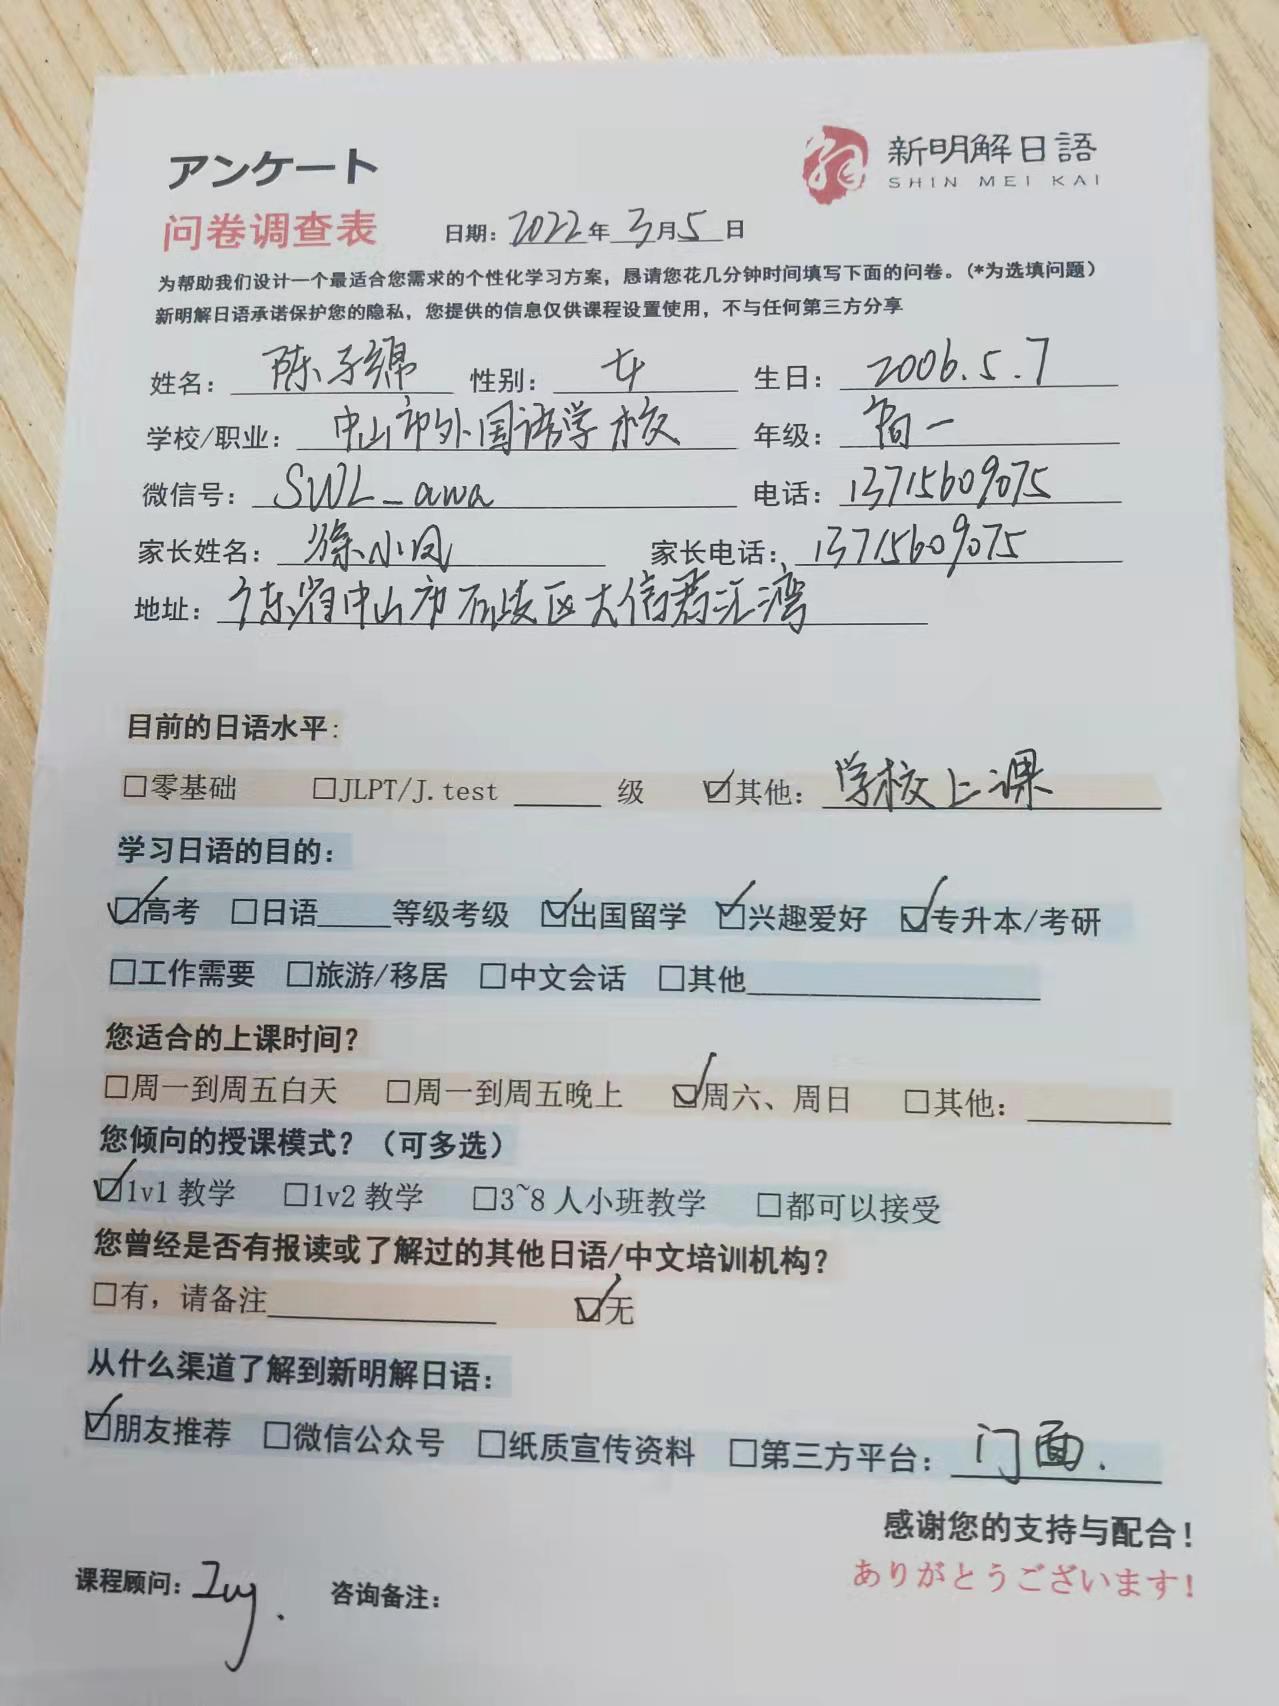 アンケート
新明解日語
SHIN MEI KAI
问卷调查表 日期：2022年3月5日
为帮助我们设计一个最适合您需求的个性化学习方案，恳请您花几分钟时间填写下面的问卷。(*为选填问题)
新明解日语承诺保护您的隐私，您提供的信息仅供课程设置使用，不与任何第三方分享
姓名：陈子锦 性别：女 生日：2006.5.7
学校/职业：中山市外国语学校 年级：初一
微信号：SWL_awa 电话：13715609075
家长姓名：徐小凤 家长电话：13715609075
地址：广东省中山市石岐区大信君汇湾
目前的日语水平：
□零基础 □JLPT/J.test ____ 级 ☑其他：学校上课
学习日语的目的：
☑高考 □日语____等级考级 ☑出国留学 ☑兴趣爱好 ☑专升本/考研
□工作需要 □旅游/移居 □中文会话 □其他____
您适合的上课时间？
□周一到周五白天 □周一到周五晚上 ☑周六、周日 □其他：____
您倾向的授课模式？（可多选）
☑1v1教学 □1v2教学 □3~8人小班教学 □都可以接受
您曾经是否有报读或了解过的其他日语/中文培训机构？
□有，请备注____ ☑无
从什么渠道了解到新明解日语：
☑朋友推荐 □微信公众号 □纸质宣传资料 □第三方平台：门面.
感谢您的支持与配合！
ありがとうございます！
课程顾问： 咨询备注：